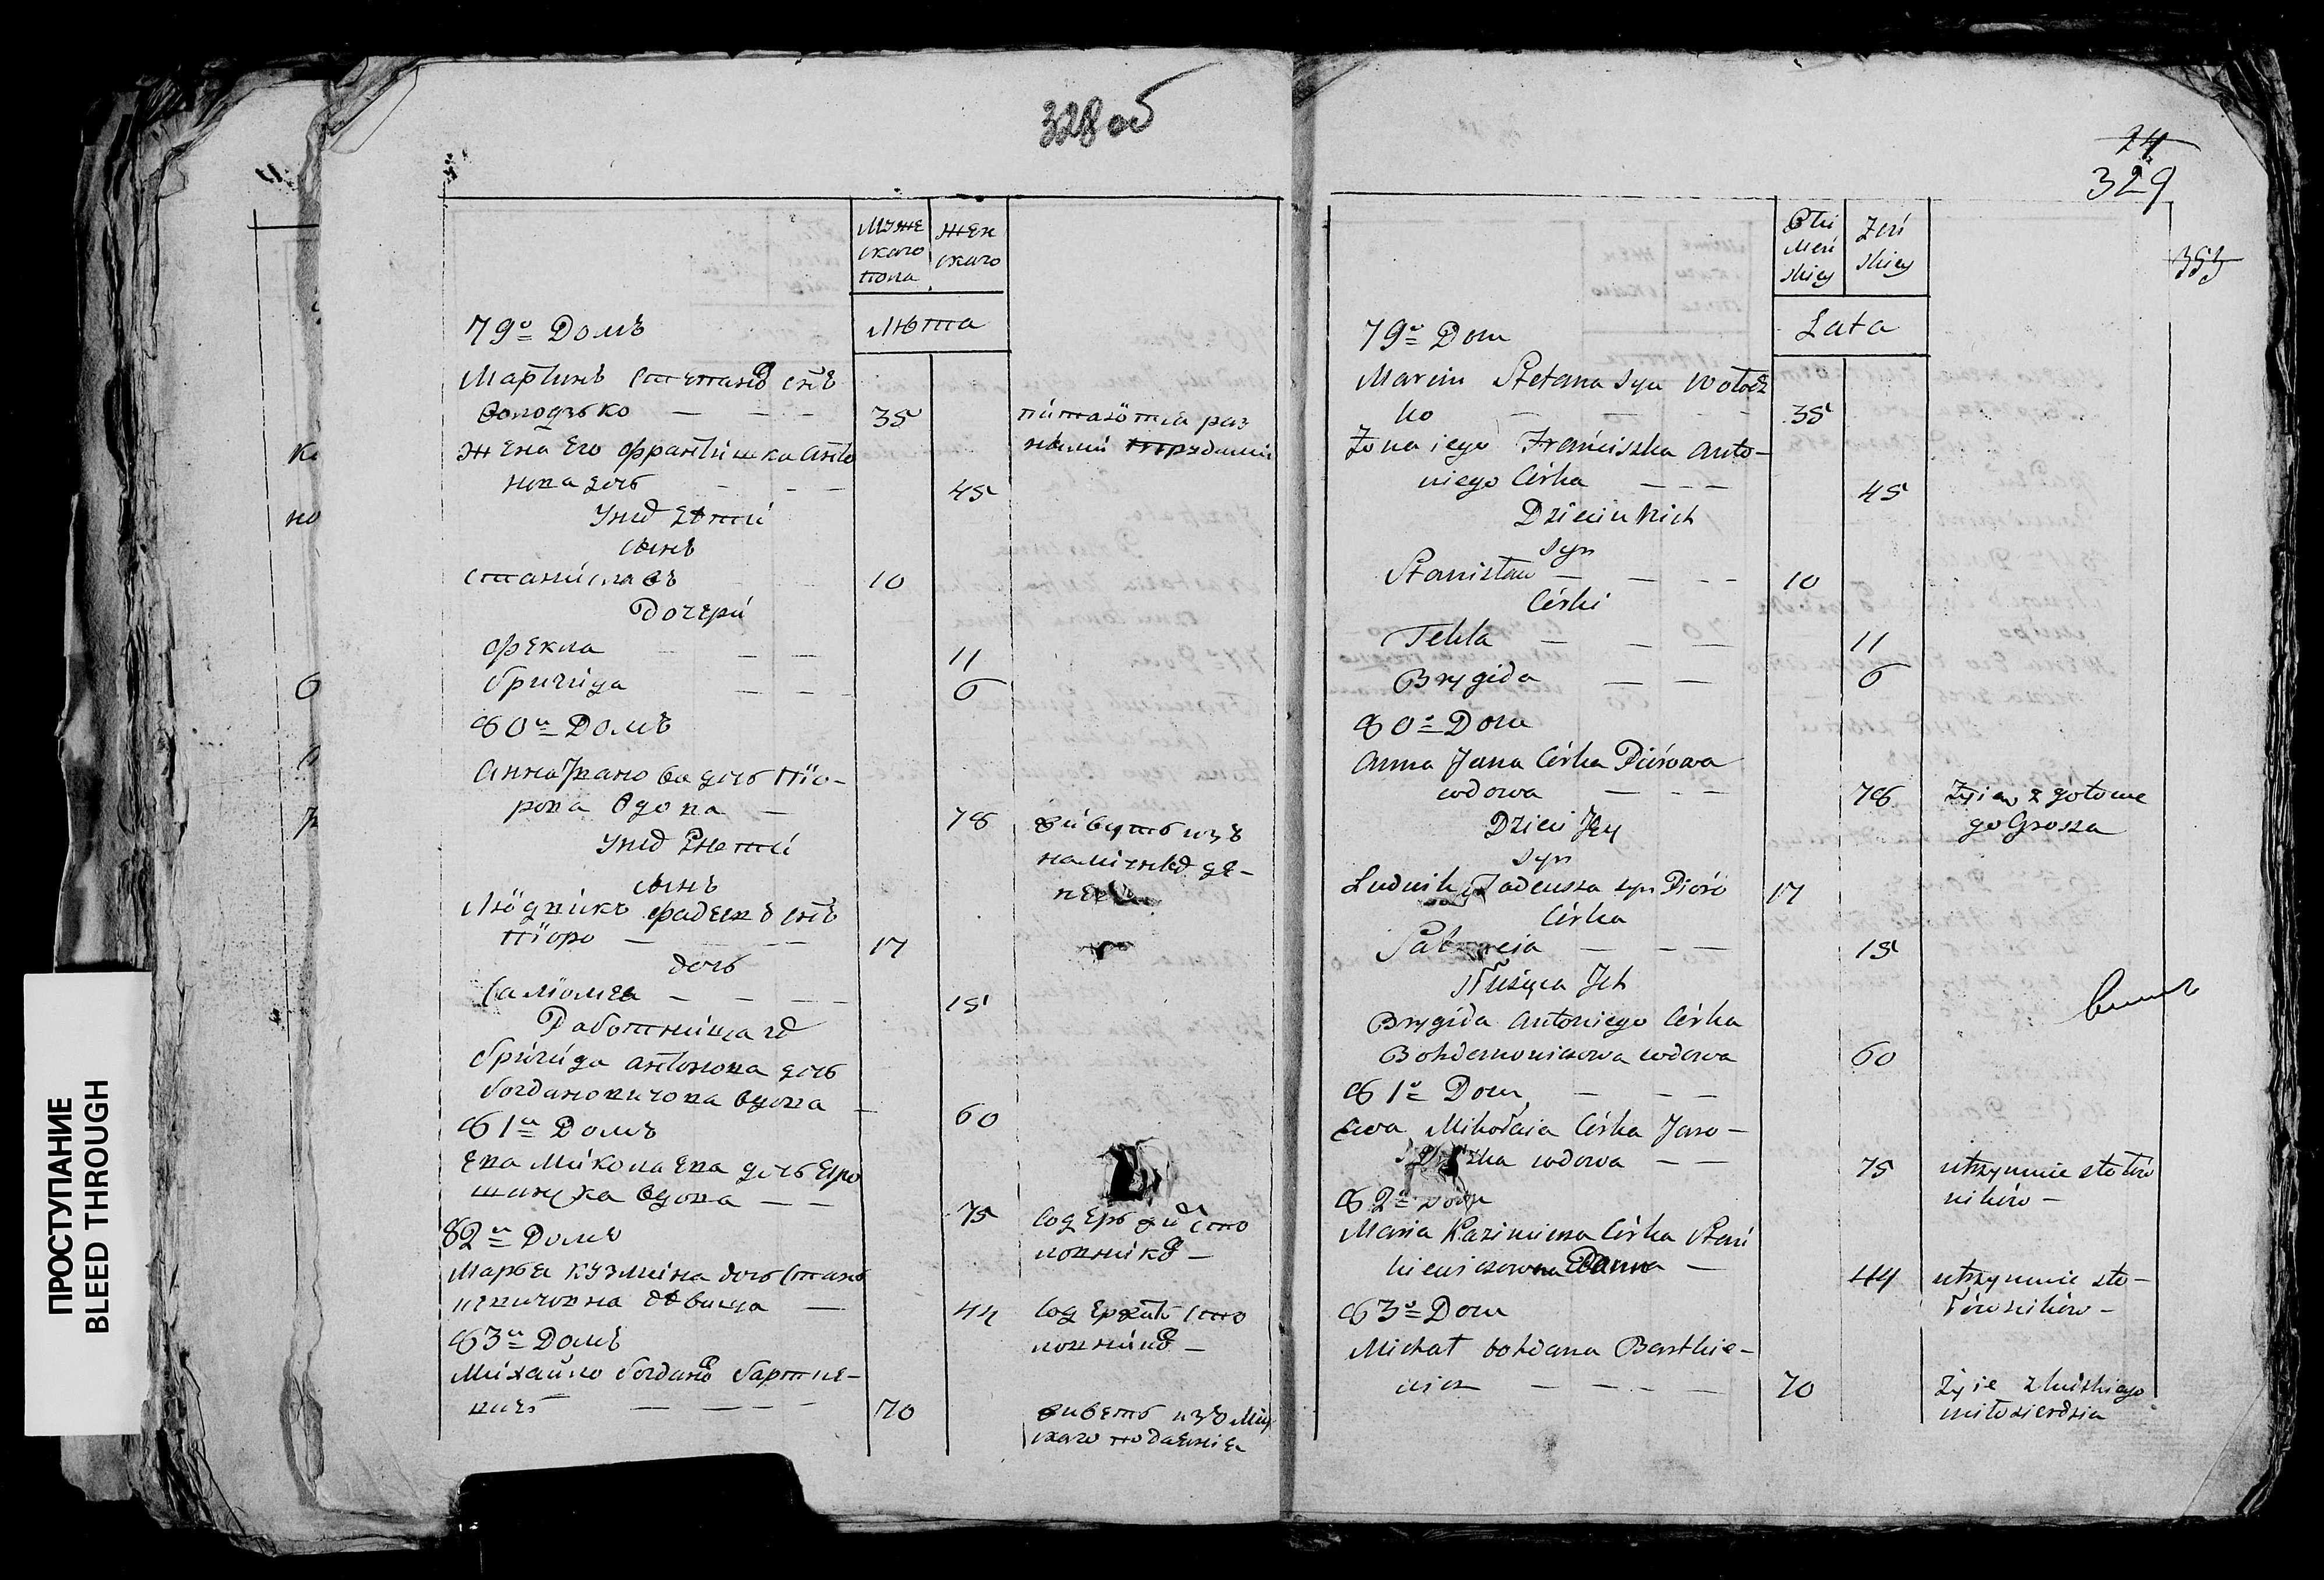 328 об
Муже
скаго
пола
жен
скаго
Лѣта
79й Домъ
Мартинъ Степановъ снъ
Володзько — — — 35
питаются раз
ными трудами
Жена Его Францишка Анто
нова дочь — — 45
У нихъ Дети
сынъ
Станиславъ 10
Дочери
Фекла — — 11
Бригида — — 6
80й Домъ
Анна Иванова дочь Піо-
рова вдова — 78
живутъ изъ
наличныхъ де-
У нихъ Дети
сынъ
Людвикъ Фадеевъ снъ
Піоро — — 17
дочь
Саломея — — — 15
Работница ихъ
Бригида Антонова дочь
Богдановичова вдова — 60
81й Домъ
Ева Миколаева дочь Яро
вдова — — 75
содержитъ сто
ловниковъ —
82й Домъ
Марья Кузмина дочь Стань
кевичовна девица — 44
содержитъ сто
ловниковъ —
83й Домъ
Михайло Богдановъ Бартке-
вичъ — — — 70
живетъ изъ Мир
скаго подаенія
24
329
353
Płci
Męs
skiey
Żeń
skiey
Lata
79o Dom
Marcin Stefana syn Wołodz
ko — — — 35
Żona iego Franciszka Anto-
niego Córka — — — 45
Dzieci u Nich
syn
Stanisław — — — 10
Córki
Tekla — — — 11
Brygida — — 6
80o Dom
Anna Jana Córka Piórowa
wdowa — — — 78
Żyie z gotowe
go Grosza
Dzieci Jey
syn
Ludwik Tadeusza syn Pióro 17
Córka
— — — 15
Służąca Ich
Brygida Antoniego Córka
Bohdanowiczowa wdowa 60
81o Dom — — —
Ewa Mikołaia Córka Jaro-
wdowa — — 75
utrzymuie stołow
ników —
82o Dom
Maria Kazimierza Córka Stań
kiewiczowna Panna — 44
utrzymuie sto-
łowników —
83o Dom
Michał Bohdana Bartkie-
wicz — — — — 70
Żyie z ludzkiego
miłosierdzia
ПРОСТУПАНИЕ
BLEED THROUGH